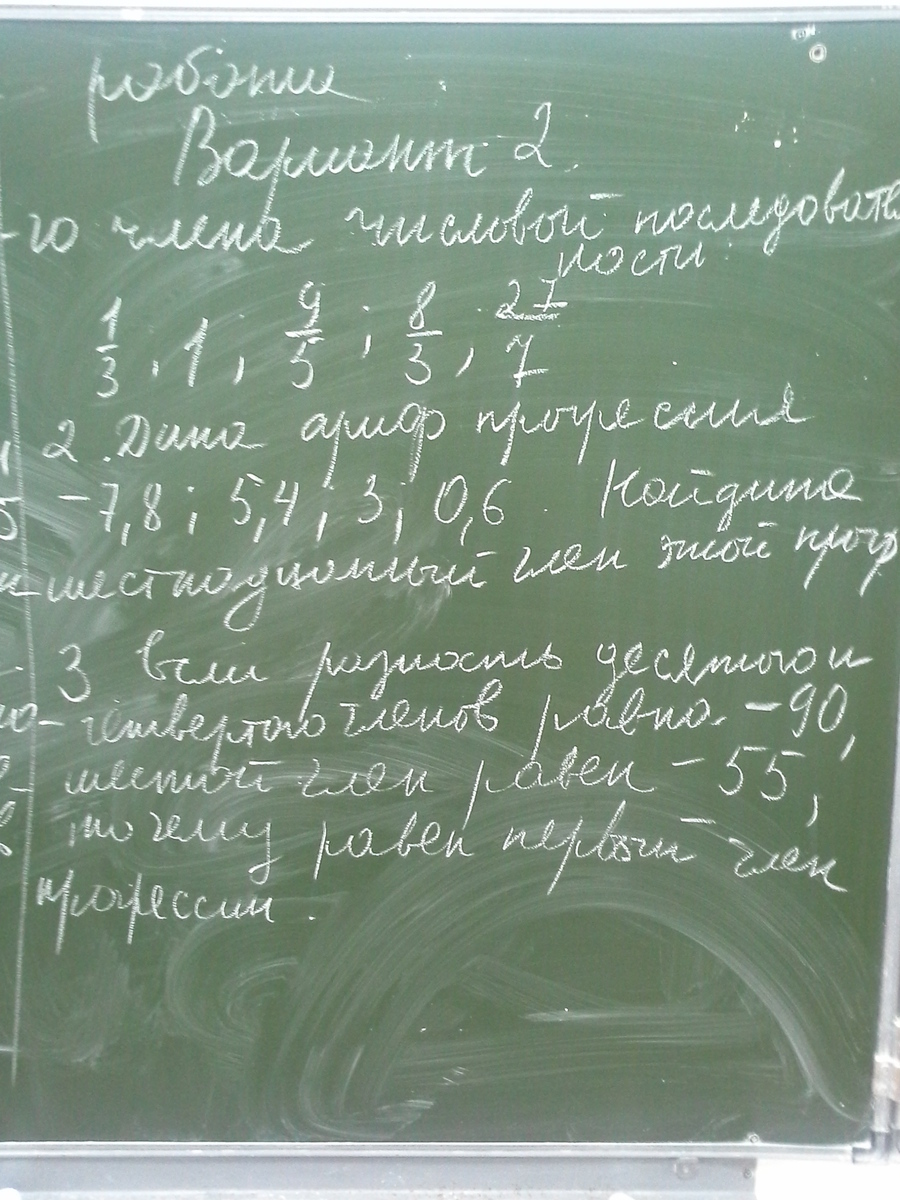 работа
Вариант 2.
-го члена числовой последователь
ности:
1/3, 1, 9/5; 8/3, 27/7
2. Дана ариф прогрессия
-7,8; 5,4; 3; 0,6. Найдите
шестнадцатый член этой прогр
3 Если разность десятого и
четвертого членов равна -90,
шестой член равен -55,
то чему равен первый член
прогрессии.